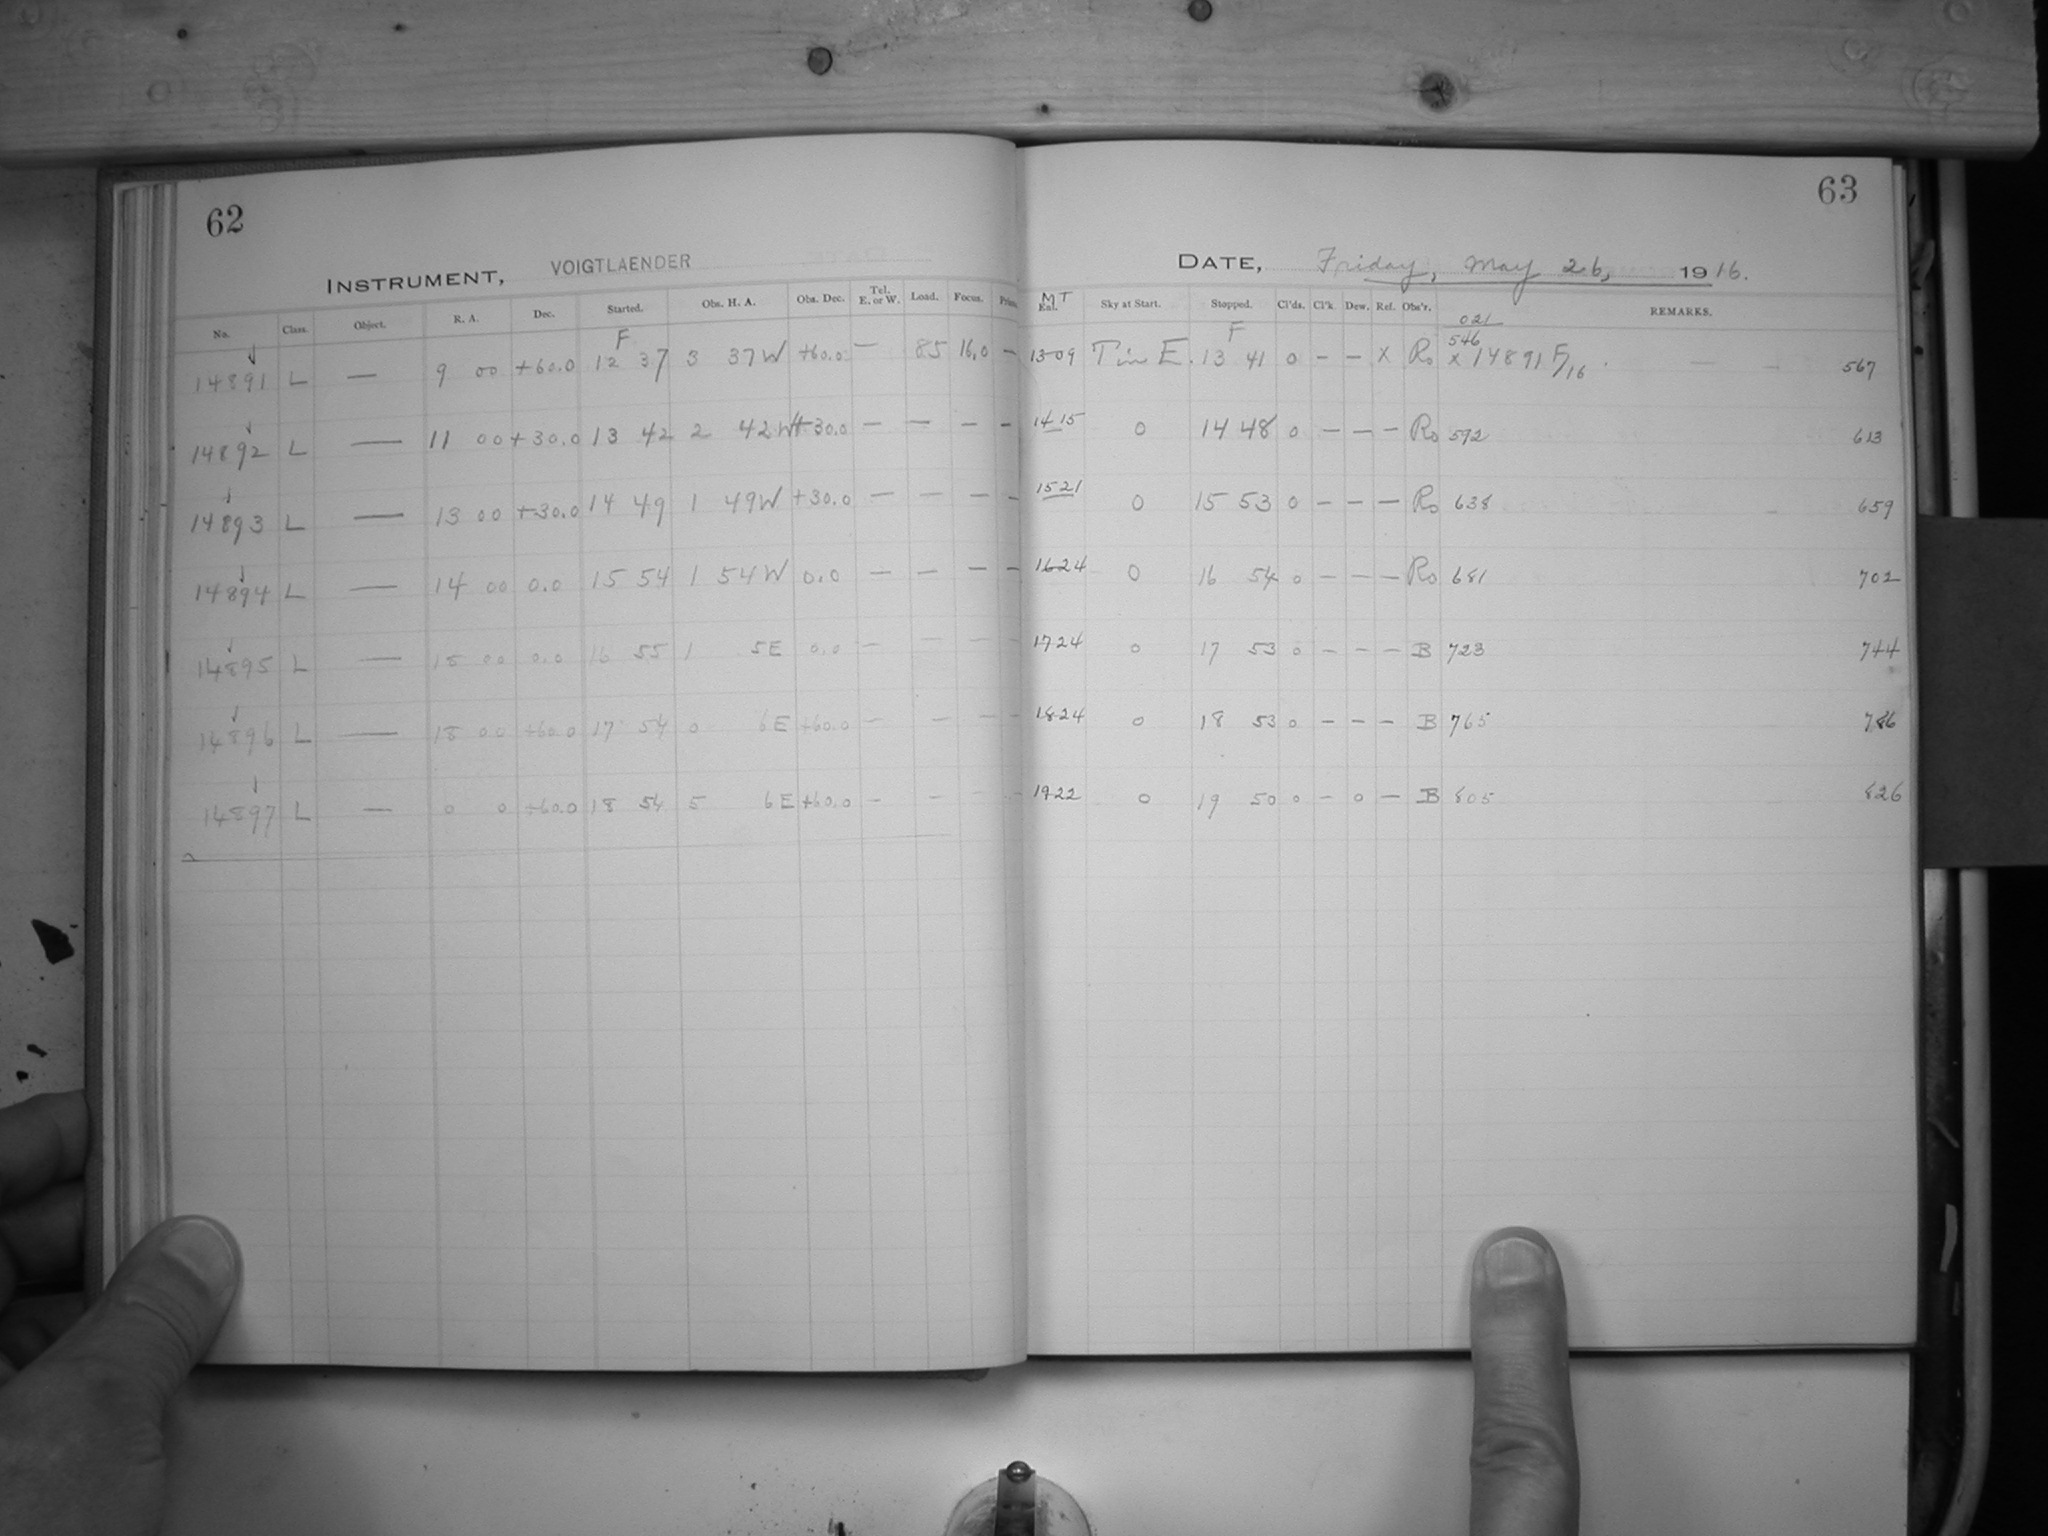 62
INSTRUMENT, VOIGTLAENDER
No. Class. Object. R. A. Dec. Started. Obs. H. A. Obs. Dec. Tel. E. or W. Load. Focus.
F
14891 L — 9 00 +60.0 12 37 3 37W +60.0 — 85 16.0 —
14892 L — 11 00 +30.0 13 42 2 42W +30.0 — — — —
14893 L — 13 00 +30.0 14 49 1 49W +30.0 — — — —
14894 L — 14 00 0.0 15 54 1 54W 0.0 — — — —
14895 L — 18 00 0.0 16 55 1 5E 0.0 — — — —
14896 L — 18 00 +60.0 17 54 0 6E +60.0 — — — —
14897 L — 0 0 +60.0 18 54 5 6E +60.0 — — —
63
DATE, Friday, May 26, 1916.
MT
Sky at Start. Stopped. Cl'ds. Cl'k. Dew. Ref. Obs'r. REMARKS.
F 021
546
13 09 13 41 0 — — X Ro x 14891 F/16 567
14 15 0 14 48 0 — — — Ro 592 613
15 21 0 15 53 0 — — — Ro 638 659
16 24 0 16 54 0 — — — Ro 681 702
17 24 0 17 53 0 — — — B 723 744
18 24 0 18 53 0 — — — B 765 786
19 22 0 19 50 0 — 0 — B 805 826